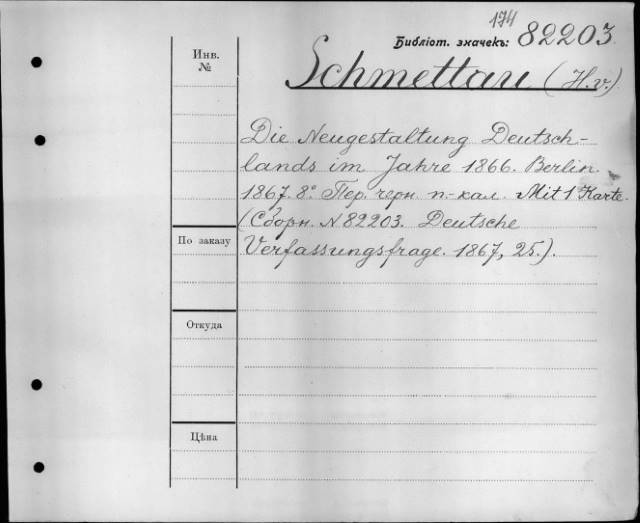 174
Библіот. значекъ: 82203.
Инв.
№
Schmettau (H.v.)
Die Neugestaltung Deutsch-
lands im Jahre 1866. Berlin
1867. 8º. Пер. черн. п.-кал. Mit 1 Karte.
(Сборн. N 82203. Deutsche
По заказу
Verfassungsfrage. 1867, 25.).
Откуда
Цѣна